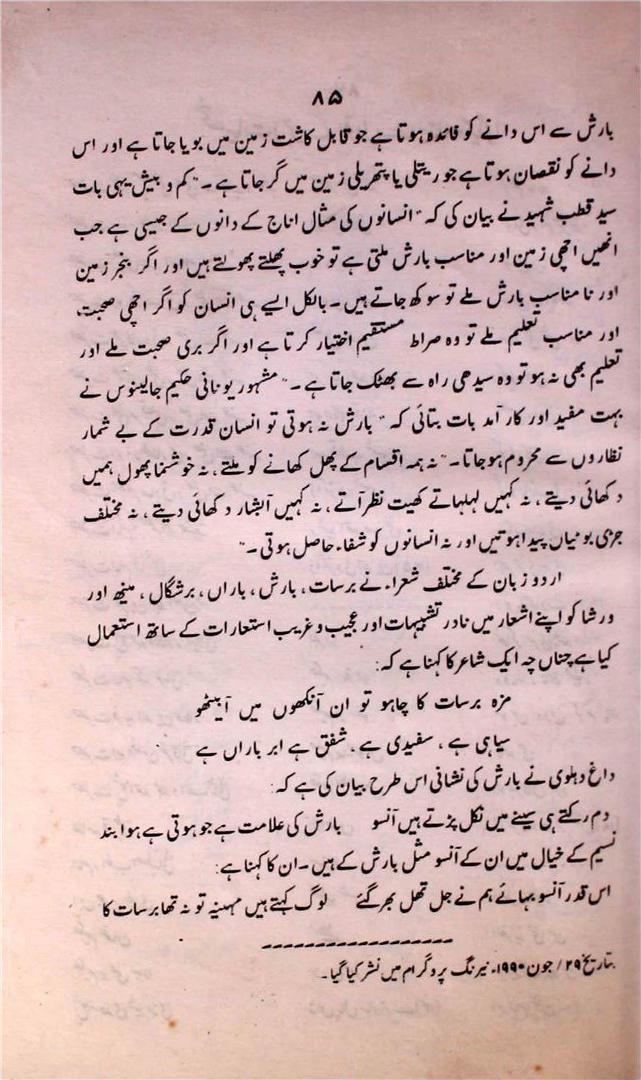 ۸۵
بارش سے اس دانے کو فائدہ ہوتا ہے جو قابل کاشت زمین میں بویا جاتا ہے اور اس
دانے کو نقصان ہوتا ہے جو ریتلی یا پتھریلی زمین میں گر جاتا ہے۔" کم و بیش یہی بات
سید قطب شہید نے بیان کی کہ "انسانوں کی مثال اناج کے دانوں کے جیسی ہے جب
انھیں اچھی زمین اور مناسب بارش ملتی ہے تو خوب پھلتے پھولتے ہیں اور اگر بنجر زمین
اور نا مناسب بارش ملے تو سوکھ جاتے ہیں۔ بالکل ایسے ہی انسان کو اگر اچھی صحبت،
اور مناسب تعلیم ملے تو وہ صراط مستقیم اختیار کرتا ہے اور اگر بری صحبت ملے اور
تعلیم بھی نہ ہو تو وہ سیدھی راہ سے بھٹک جاتا ہے۔" مشہور یونانی حکیم جالینوس نے
بہت مفید اور کار آمد بات بتائی کہ "بارش نہ ہوتی تو انسان قدرت کے بے شمار
نظاروں سے محروم ہو جاتا۔" نہ ہمہ اقسام کے پھل کھانے کو ملتے، نہ خوشنما پھول ہمیں
دکھائی دیتے، نہ کہیں لہلہاتے کھیت نظر آتے، نہ کہیں آبشار دکھائی دیتے، نہ مختلف
جڑی بوٹیاں پیدا ہوتیں اور نہ انسانوں کو شفاء حاصل ہوتی۔"
اردو زبان کے مختلف شعراء نے برسات، بارش، باراں، برشگال، مینھ اور
ورشا کو اپنے اشعار میں نادر تشبیہات اور عجیب و غریب استعارات کے ساتھ استعمال
کیا ہے چناں چہ ایک شاعر کا کہنا ہے کہ:
مزہ برسات کا چاہو تو ان آنکھوں میں آبیٹھو
سیاہی ہے، سفیدی ہے، شفق ہے ابر باراں ہے
داغ دہلوی نے بارش کی نشانی اس طرح بیان کی ہے کہ:
دم رکتے ہی سینے میں نکل پڑتے ہیں آنسو بارش کی علامت ہے جو ہوتی ہے ہوا بند
نسیم کے خیال میں ان کے آنسو مثل بارش کے ہیں۔ ان کا کہنا ہے:
اس قدر آنسو بہائے ہم نے جل تھل بھر گئے لوگ کہتے ہیں مہینہ تو نہ تھا برسات کا
بتاریخ ۲۹/ جون ۱۹۹۰ء نیرنگ پروگرام میں نشر کیا گیا۔